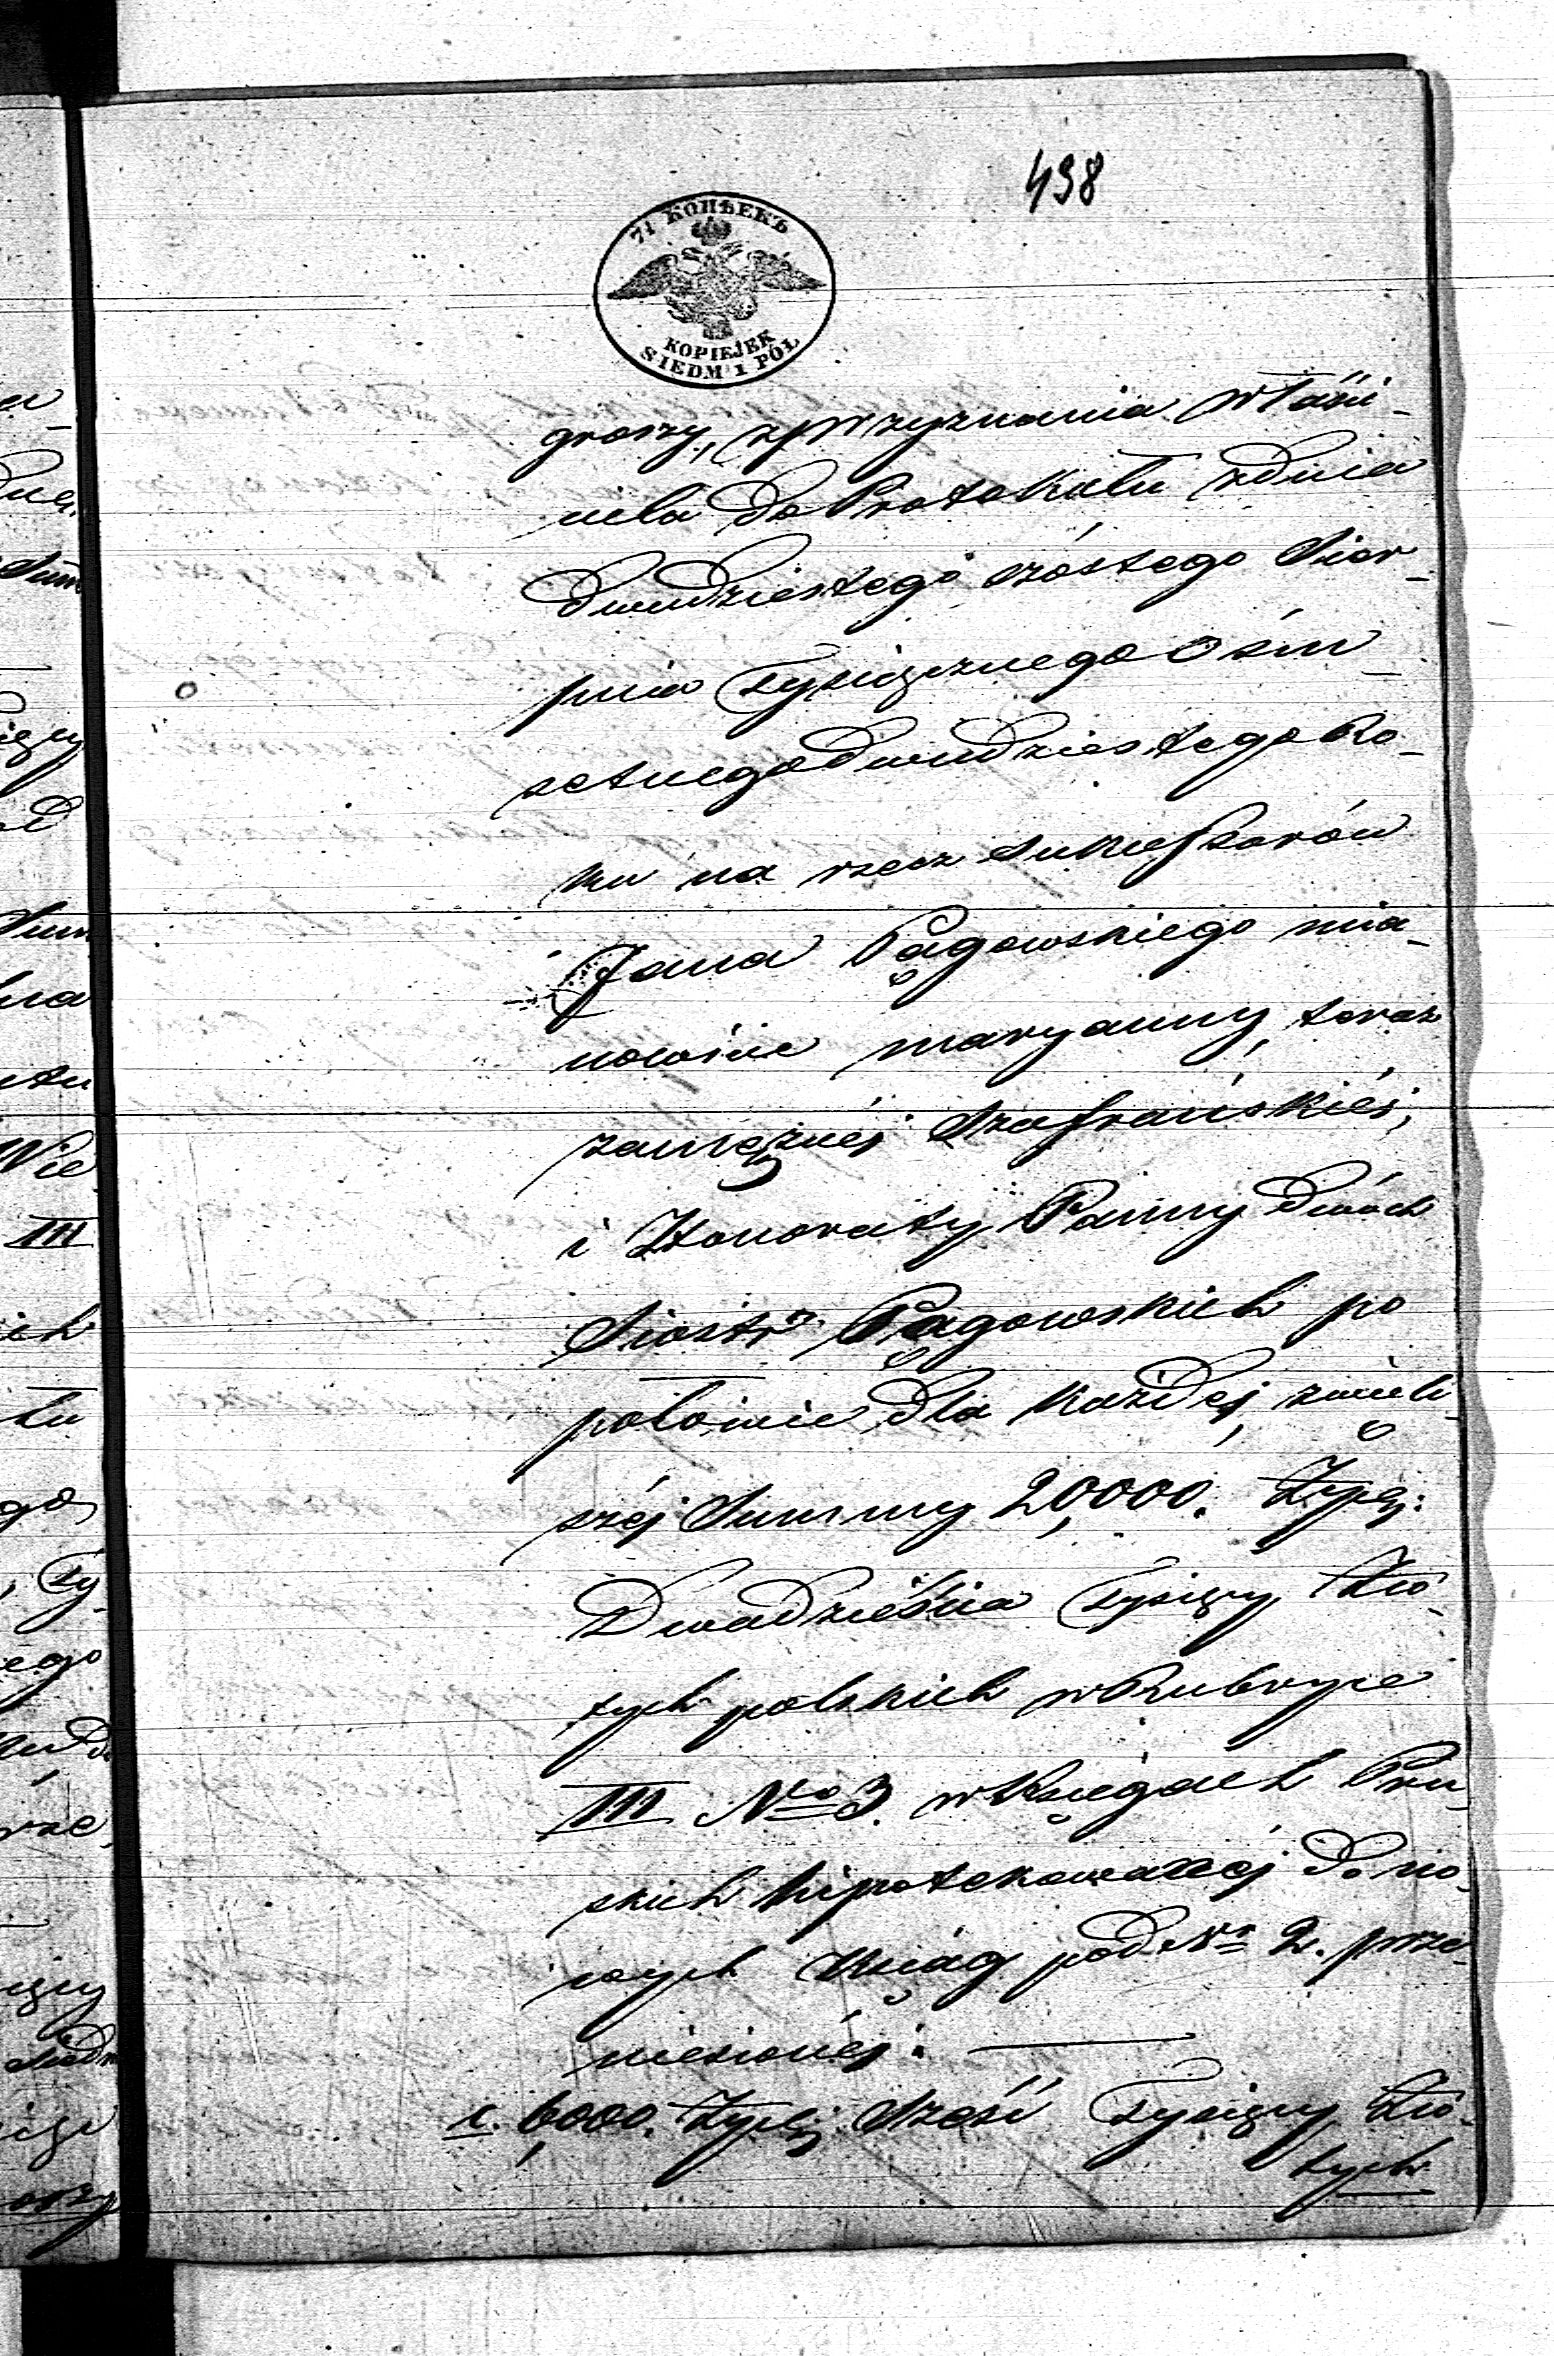 498
7½ КОПѢЕКЪ
KOPIEJEK
SIEDM I PÓŁ
groszy, z przyznania właści-
ciela do Protokułu z dnia
dwudziestego szóstego Sier-
pnia Tysiącznego Ośm-
setnego dwudziestego Ro-
ku na rzecz Sukcessorów
Jana Pągowskiego mia-
nowicie Maryanny, teraz
zamężnéj Szafrańskiéj,
i Honoraty Panny dwóch
Siostr Pągowskich po
połowie dla każdej, z więk-
széj Summy 20,000. Złpol:
Dwadzieścia Tysięcy Zło-
tych polskich w Rubryce
III No 3. w Księgach Pru-
skich hipotekowanéj do no-
wych Ksiąg pod No 2. prze-
niesionéj. —
c. 6,000. Złpol: Sześć Tysięcy Zło-
tych